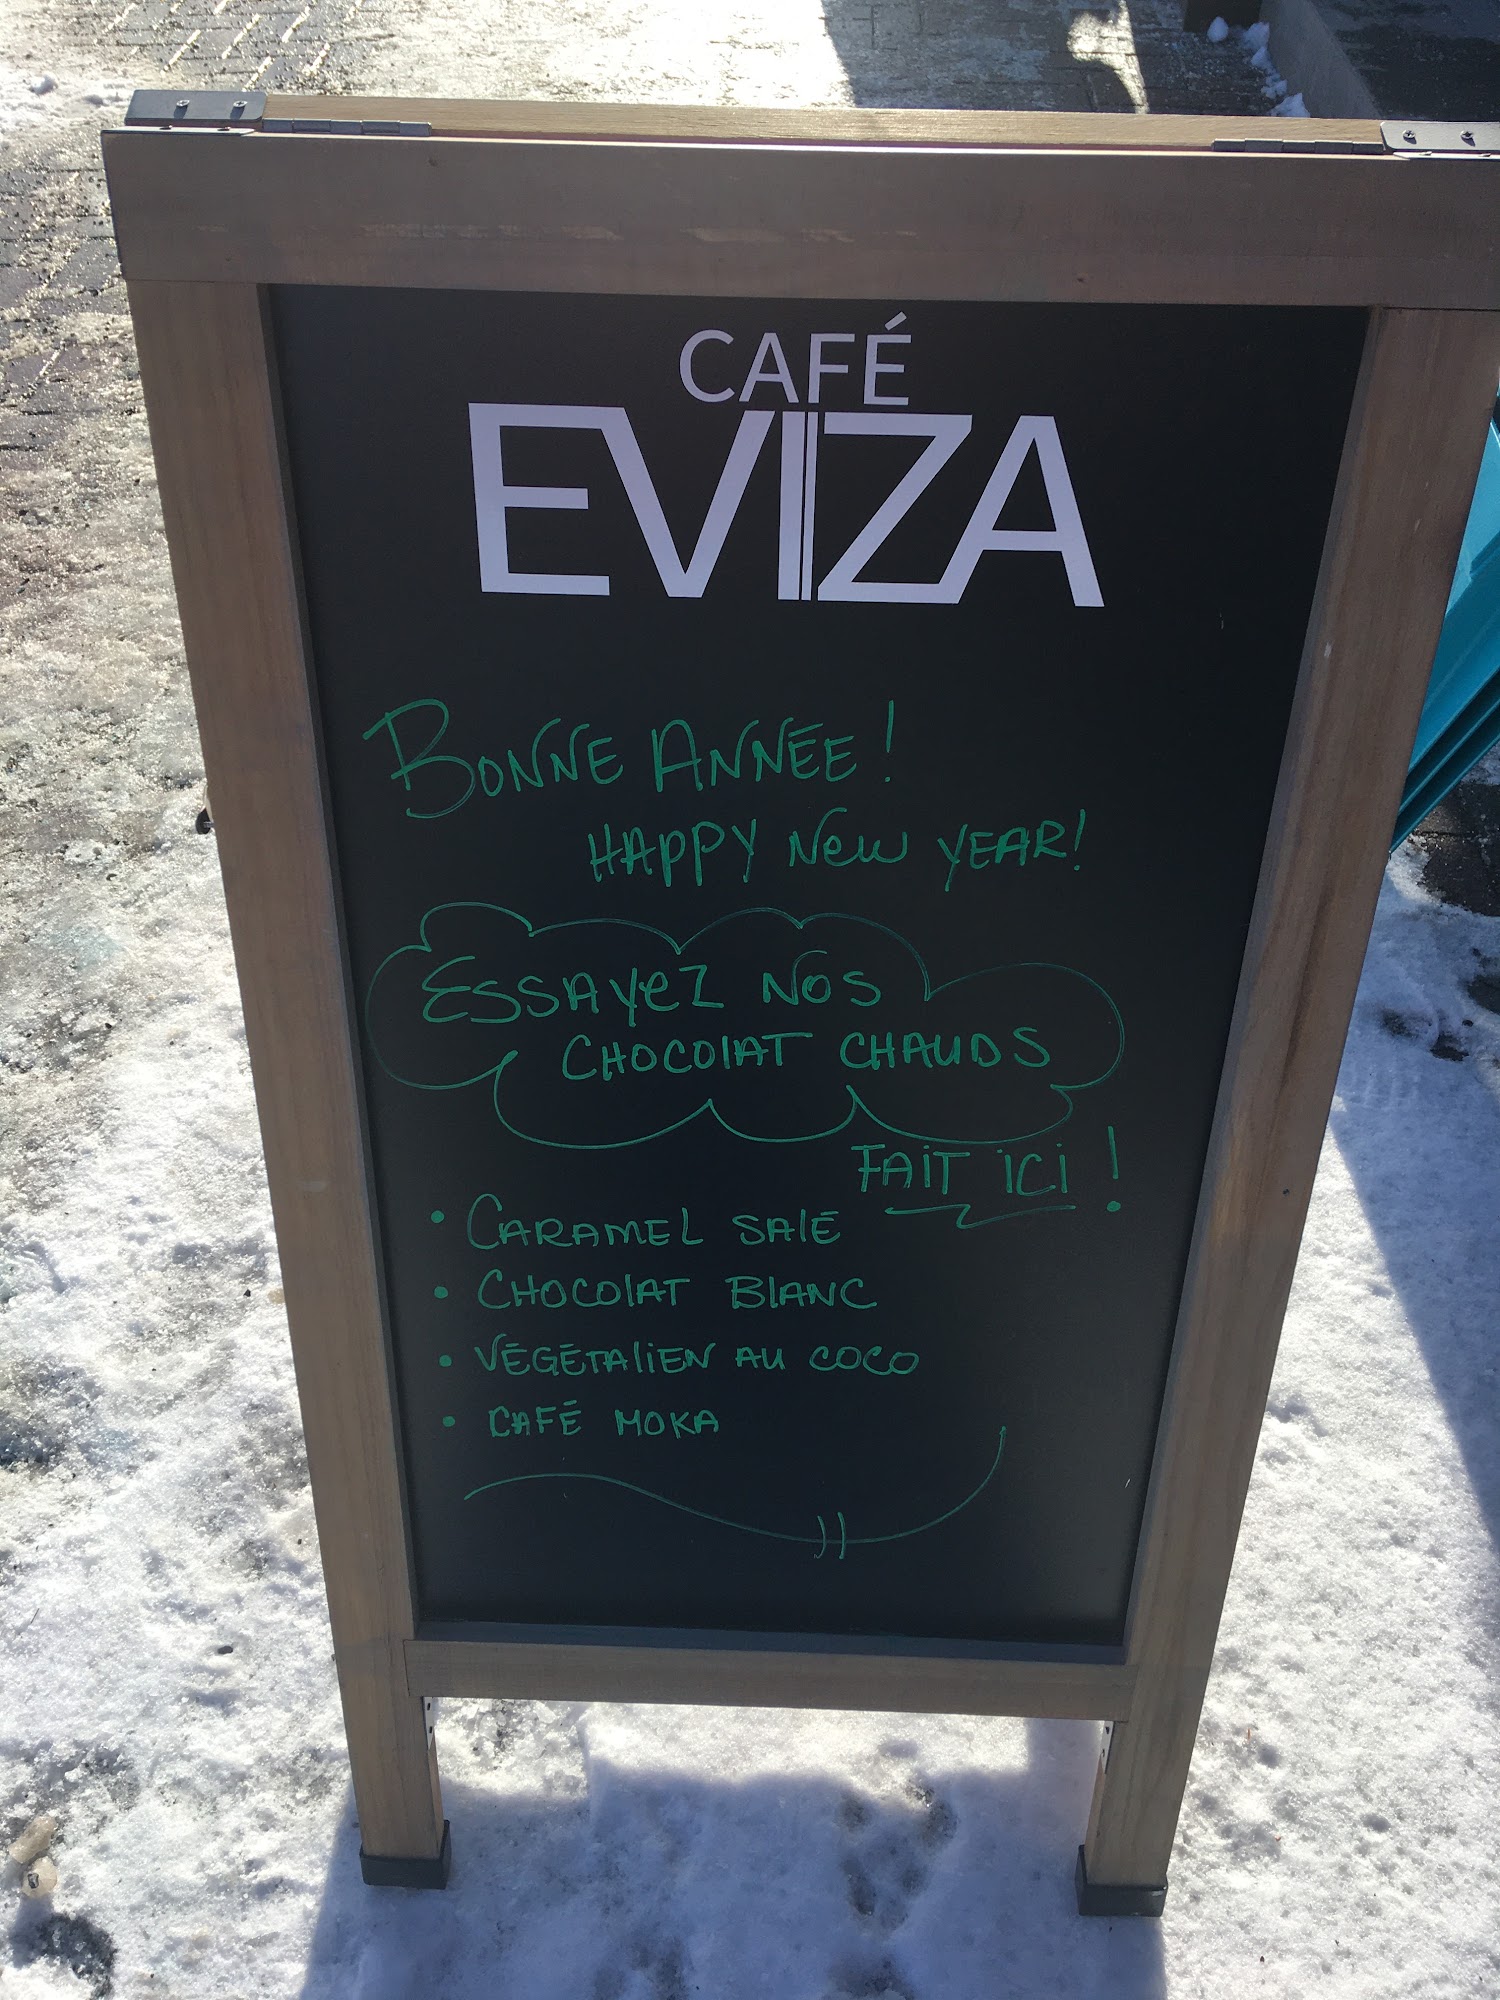 CAFÉ
EVIZA
BONNE ANNÉE !
HAPPY NEW YEAR!
ESSAYEZ NOS
CHOCOLAT CHAUDS
FAIT ICI !
• CARAMEL SALÉ
• CHOCOLAT BLANC
• VÉGÉTALIEN AU COCO
• CAFÉ MOKA